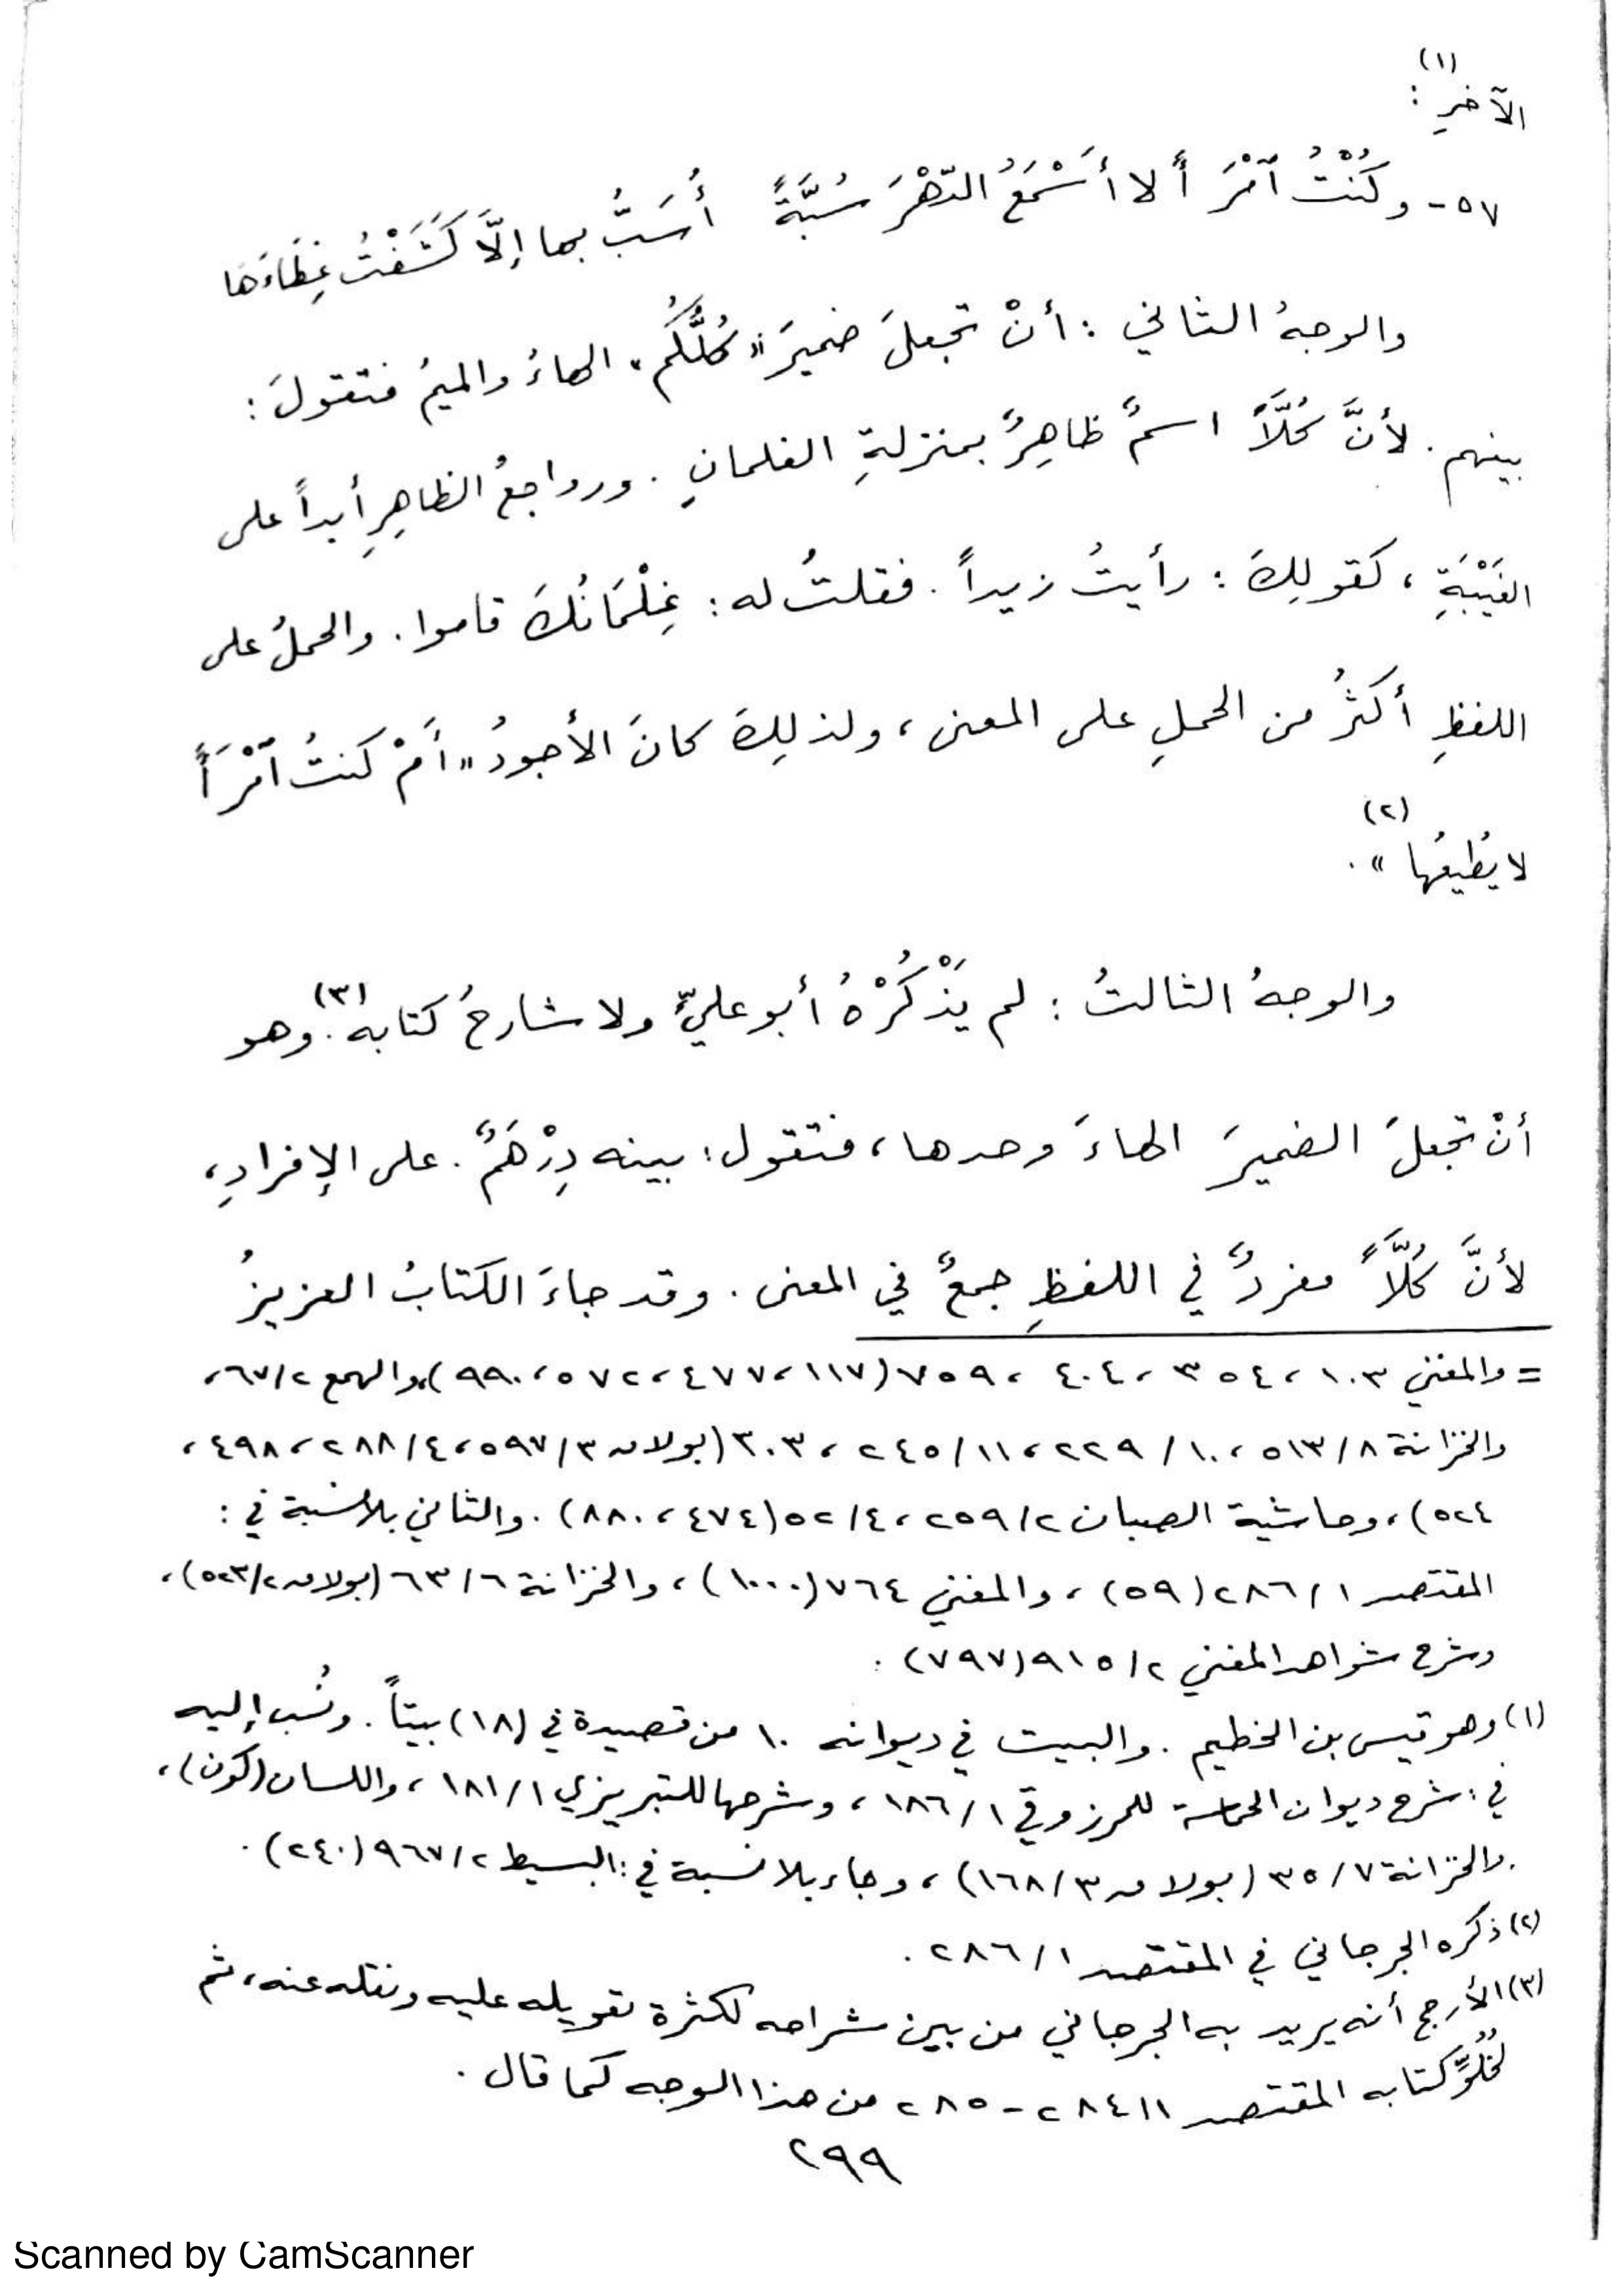 (١)
الآخرِ :
٥٧- وكُنْتُ ٱمْرَأً لا أَسْمَعُ الدَّهْرَ سُبَّةً أُسَبُّ بها إلَّا كَشَفْتُ غِطَاءَهَا
والوجهُ الثاني : أنْ تجعلَ ضميرَ " كُلُّكُم " الهاءُ والميمُ فتقولَ :
بينهم . لأنَّ كُلَّاً اسمٌ ظاهِرٌ بمنزلةِ الغلمانِ . ورواجعُ الظاهِرِ أبداً على
الغَيْبَةِ ، كقولِكَ : رأيتُ زيداً . فقلتُ له : غِلْمَانُكَ قاموا . والحملُ على
اللفظِ أكثرُ من الحملِ على المعنى ، ولذلِكَ كانَ الأجودُ " أَمْ كنتُ ٱمْرَأً
(٢)
لا يُطيعُها " .
والوجهُ الثالثُ : لم يَذْكُرْهُ أبو عليٍّ ولا شارحُ كتابه (٣). وهو
أنْ تجعلَ الضميرَ الهاءَ وحدها ، فتقول : بينه دِرْهَمٌ . على الإفرادِ ،
لأنَّ كُلَّاً مفردٌ في اللفظِ جمعٌ في المعنى . وقد جاءَ الكتابُ العزيزُ
= والمغني ١٠٣ ، ٣٥٤ ، ٤٠٤ ، ٧٥٩ (١١٧ ، ٤٧٧ ، ٥٧٢ ، ٩٩٠) ، والهمع ٦٧/٢ ،
والخزانة ٥١٣/٨ ، ١٠/ ٢٢٩ ، ٢٤٥/١١ ، ٣٠٣ (بولاق ٥٩٧/٣ ، ٢٨٨/٤ ، ٤٩٨ ،
٥٢٤) ، وحاشية الصبان ٢٥٩/٢ ، ٥٢/٤ (٤٧٤ ، ٨٨٠) . والثاني بلا نسبة في :
المقتصد ٢٨٦/١ (٥٩) ، والمغني ٧٦٤ (١٠٠٠) ، والخزانة ٦٣/٦ (بولاق ٥٢٣/٢) ،
وشرح شواهد المغني ٩١٥/٢ (٧٩٧) .
(١) وهو قيس بن الخطيم . والبيت في ديوانه ١٠ من قصيدة في (١٨) بيتاً . ونُسب إليه
في : شرح ديوان الحماسة للمرزوقي ١٨٦/١ ، وشرحها للتبريزي ١٨١/١ ، واللسان (كون) ،
والخزانة ٣٥/٧ (بولاق ١٦٨/٣) ، وجاء بلا نسبة في : البسيط ٩٦٧/٢ (٢٤٠) .
(٢) ذكره الجرجاني في المقتصد ٢٨٦/١ .
(٣) الأرجح أنه يريد به الجرجاني من بين شراحه لكثرة تعويله عليه ونقله عنه ، ثم
لخُلُوِّ كتابه المقتصد ٢٨٤/١ - ٢٨٥ من هذا الوجه كما قال .
٢٩٩
Scanned by CamScanner